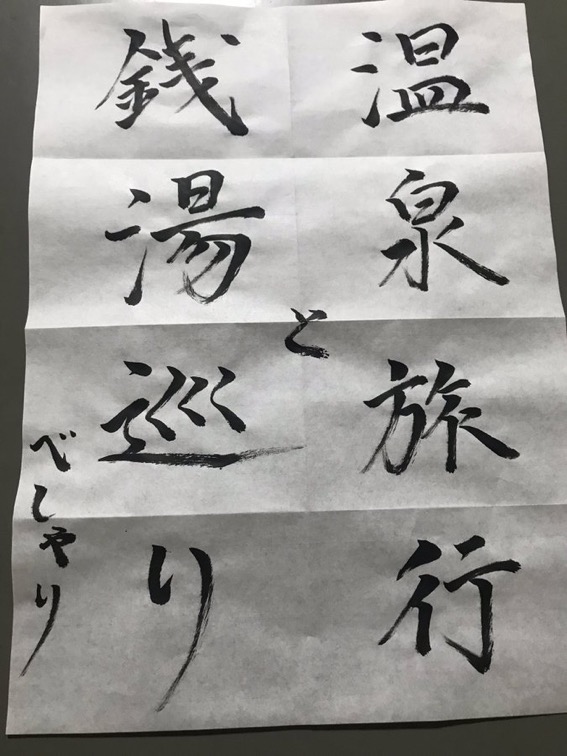 温泉旅行
と
銭湯巡り
べしゃり